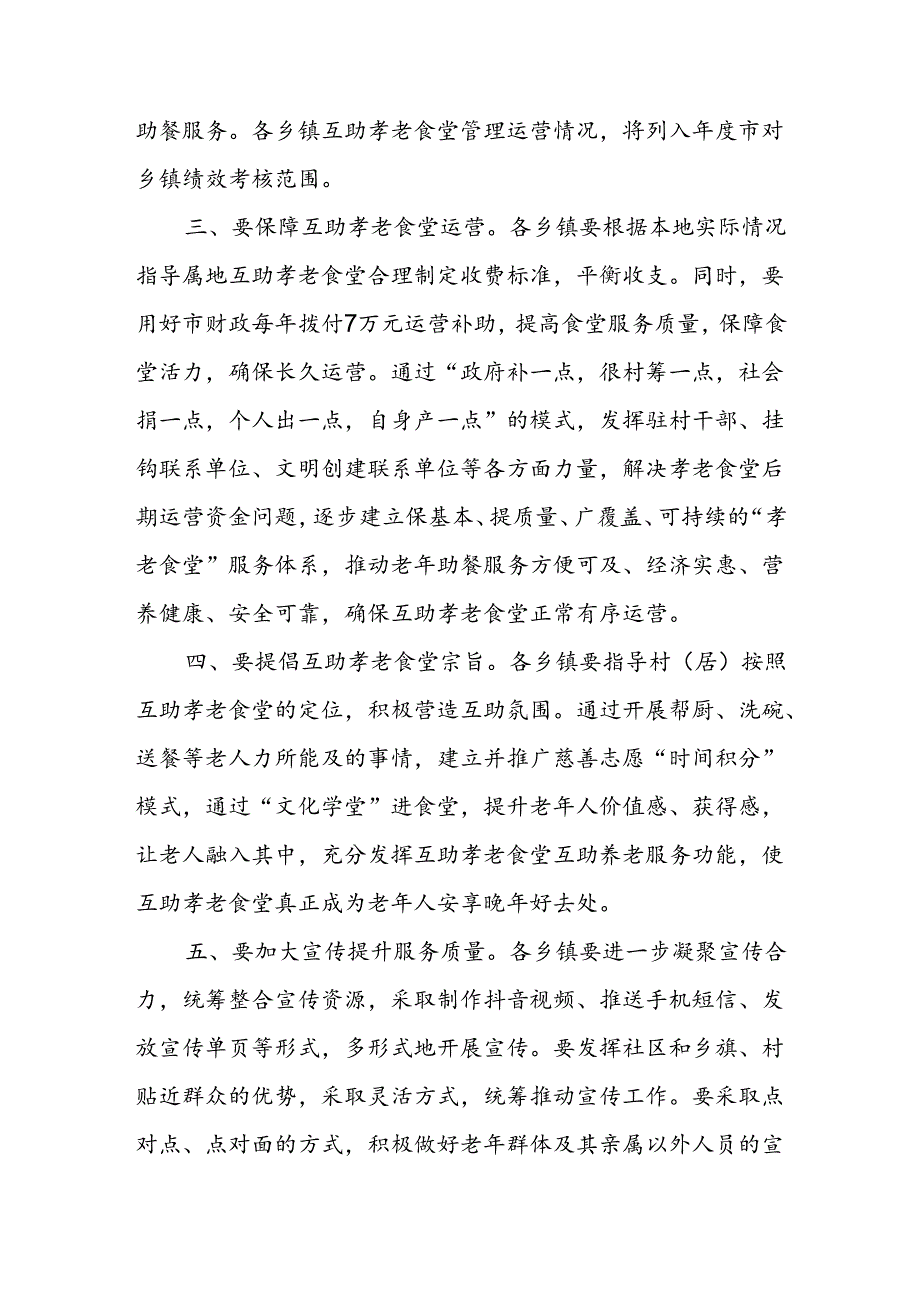 助餐服务。各乡镇互助孝老食堂管理运营情况，将列入年度市对
乡镇绩效考核范围。
三、要保障互助孝老食堂运营。各乡镇要根据本地实际情况
指导属地互助孝老食堂合理制定收费标准，平衡收支。同时，要
用好市财政每年拨付7万元运营补助，提高食堂服务质量，保障食
堂活力，确保长久运营。通过“政府补一点，很村筹一点，社会
捐一点，个人出一点，自身产一点”的模式，发挥驻村干部、挂
钩联系单位、文明创建联系单位等各方面力量，解决孝老食堂后
期运营资金问题，逐步建立保基本、提质量、广覆盖、可持续的“孝
老食堂”服务体系，推动老年助餐服务方便可及、经济实惠、营
养健康、安全可靠，确保互助孝老食堂正常有序运营。
四、要提倡互助孝老食堂宗旨。各乡镇要指导村（居）按照
互助孝老食堂的定位，积极营造互助氛围。通过开展帮厨、洗碗、
送餐等老人力所能及的事情，建立并推广慈善志愿“时间积分”
模式，通过“文化学堂”进食堂，提升老年人价值感、获得感，
让老人融入其中，充分发挥互助孝老食堂互助养老服务功能，使
互助孝老食堂真正成为老年人安享晚年好去处。
五、要加大宣传提升服务质量。各乡镇要进一步凝聚宣传合
力，统筹整合宣传资源，采取制作抖音视频、推送手机短信、发
放宣传单页等形式，多形式地开展宣传。要发挥社区和乡旗、村
贴近群众的优势，采取灵活方式，统筹推动宣传工作。要采取点
对点、点对面的方式，积极做好老年群体及其亲属以外人员的宣